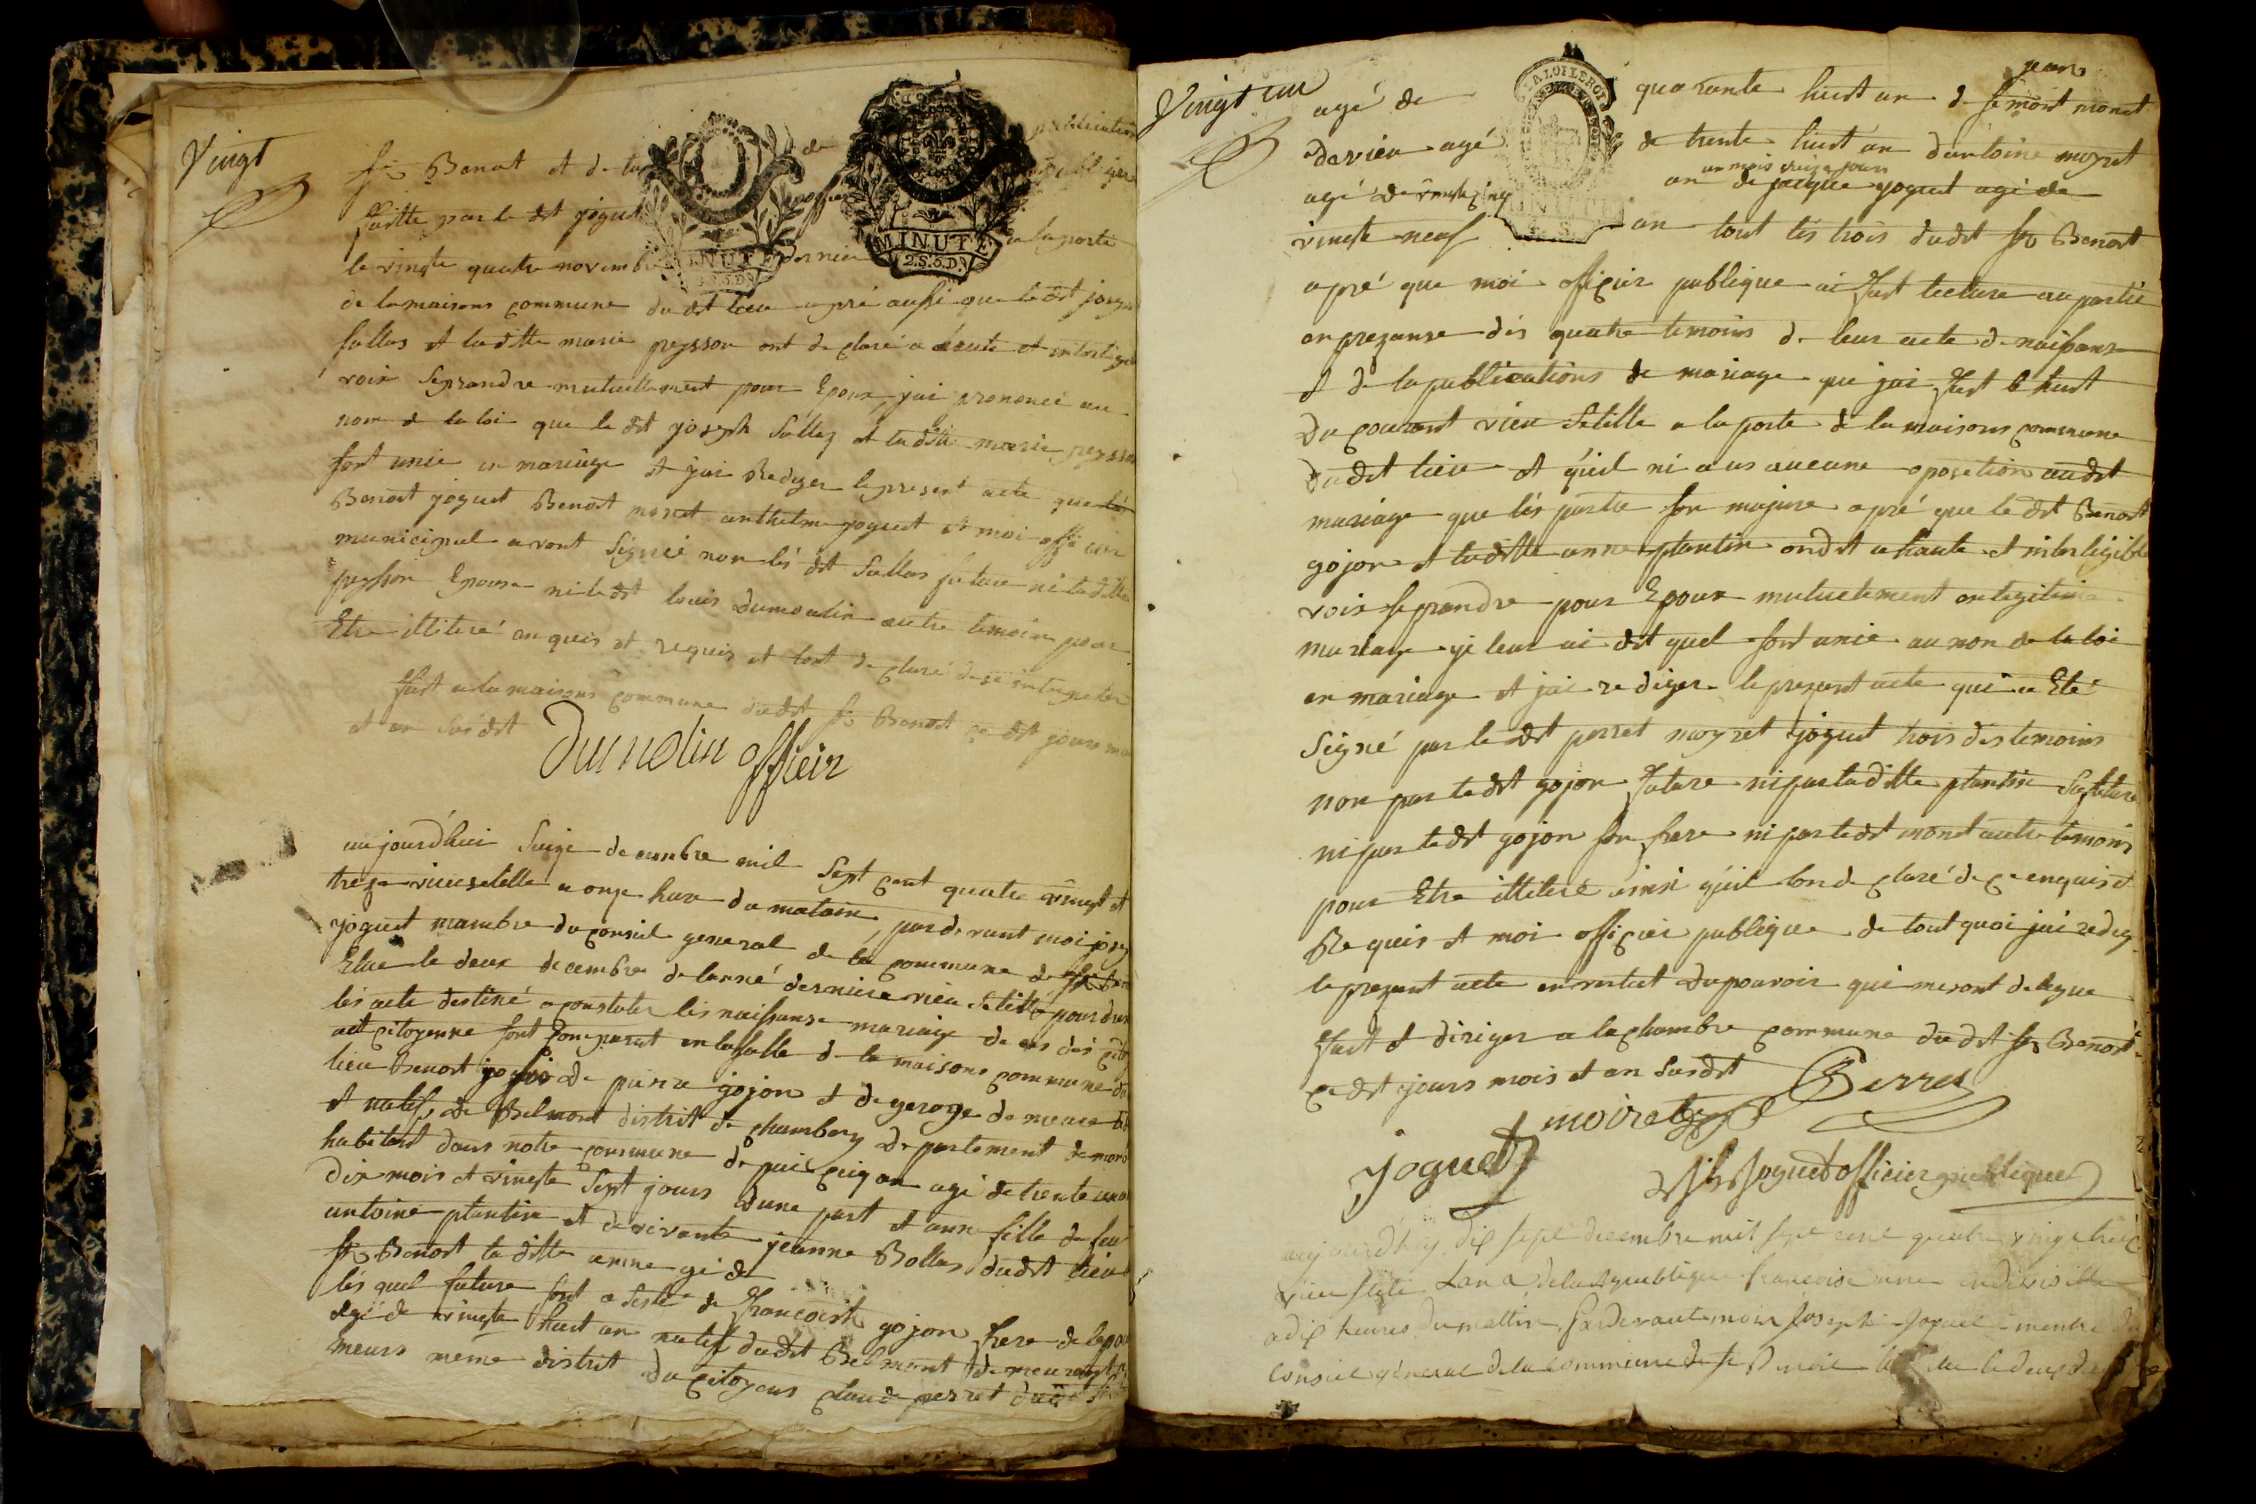 Vingt
St Benoit et de la de publication
faitte par le dit joguet
le vingte quatre novembre dernier a la porte
MINUTE
2.S.6.D.
MINUTE
de la maisons commune du dit lieu apré aussi que le dit
sallas et laditte marie peysson ont de claré a haute et
voix se prandre mutuellement pour Epoux, jai prononcé au
nom de la loi que le dit joseph Sallaz et laditte marie peysson
sont unie en mariage et jai Rediger le present acte que
Benoit joguet Benoit moret anthelme joguet et moi officier
municipal avont Signié non lés dit Sallas future ni laditte
peysson Epouse ni le dit louis dumoulin autre temoin pour
Etre illiteré enquis et requis et lont de claré
fait a la maisons commune du dit St Benoit ce dit jours
et an Susdit
Dumolin officir
aujourdhui Seize decembre mil Sept cent quatre vingt et
treze vieu stille a onze hure du matain, par devant moi
joguet mambre du conseil general de la commune de
Elue le deux decembre de lanné derniere vieu Stille pour
lés acte destiné a constater lés naissanse mariage de
citoyenne sont comparut en la salle de la maisons commune
lieu Benoit de pierre gojon et de
et natif de Belmont district de chambery departement de mon
habitant dans notre commune de puis agé de trente
dix mois et vingte Sept jours dune part et anne fille de feu
antoine plantin et de vivante jeanne Bollas dudit lieu
St Benoit laditte anne agé de
lés quel future sont asisté de francoise gojon frere de
agé de vingte huit an natif dudit Belmont demeurant
meme distrit du citoyens claude perret

Vingt un
LA LOI LE ROI
agé de quarante huit an de St mort monet
jean
davieu agé de trente huit an dantoine moyret
agé de trente cinq an de jacque joguet agé de
un mois
vingte neuf an tout lés trois dudit St Benoit
apré que moi officier publique ai fait lecture au partie
en prezanse dés quatre temoins de leur acte de naissanse
et de la publications de mariage que jai fait le huit
du courant vieu Stille a la porte de la maisons commune
du dit lieu et quil ni a us aucune oposetion audit
mariage que lés partie son majure apré que le dit Benoit
gojon et laditte anne plantin ondit a haute et interligible
voix se prandre pour Epoux mutuelement en legitime
mariage je leur ai dit quel sont unie au non de la loi
en mariage et jai rediger le prezant acte qui a Eté
Signé par le dit perret moyret joguet trois des temoins
non par le dit gojon future ni par laditte plantin Sa future
ni par le dit gojon son frere ni par le dit monet autre temoins
pour Etre illiteré ainsi quil lon de claré de ce enquis et
Requis et moi officier publique de tout quoi jai redig
le prezant acte en vertut du pouvoir qui me sont delegue
fait et diriger a la chambre commune dudit St Benoit
ce dit jours mois et an Susdit
Perret
moiret
joguet
Joguet officier publique
aujourdhuy dix sept decembre mil sept cent quatre vingt treize
vieu stile Lan 2 de la republique francoise une indivisible
a dix heures du mattin pardevant moi Joseph Joguet membre du
conseil general de la commune de St Benoit Elu le deux